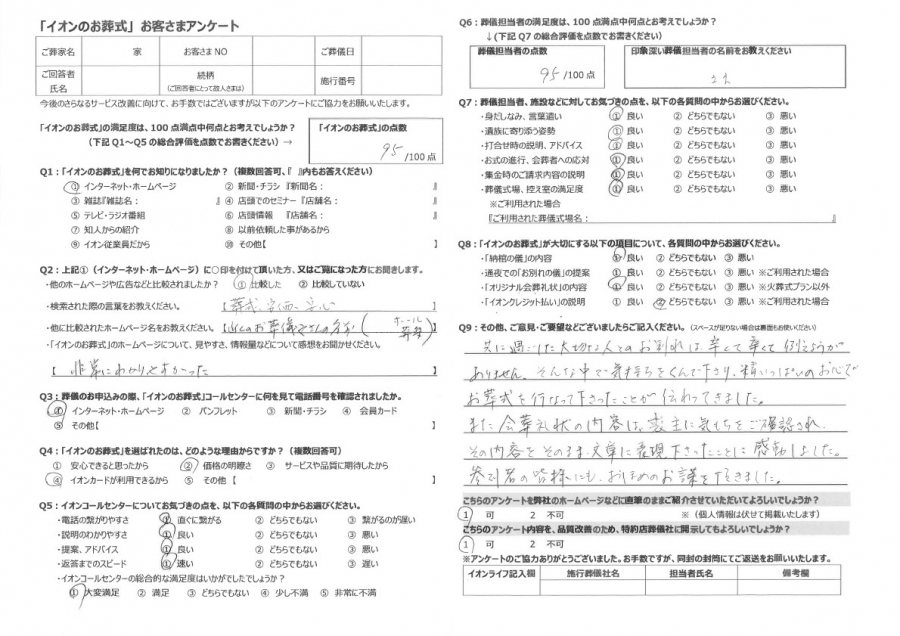 「イオンのお葬式」お客さまアンケート
ご葬家名 家 お客さまNO ご葬儀日
ご回答者氏名 続柄 (ご回答者にとって故人さまは) 施行番号
今後のさらなるサービス改善に向けて、お手数ではございますが以下のアンケートにご協力をお願いいたします。
「イオンのお葬式」の満足度は、100点満点中何点とお考えでしょうか?
(下記Q1~Q5の総合評価を点数でお書きください) →
「イオンのお葬式」の点数
95 /100点
Q1:「イオンのお葬式」を何でお知りになりましたか?(複数回答可、『 』内もお答えください)
① インターネット・ホームページ ② 新聞・チラシ『新聞名: 』
③ 雑誌『雑誌名: 』 ④ 店頭でのセミナー『店舗名: 』
⑤ テレビ・ラジオ番組 ⑥ 店頭情報 『店舗名: 』
⑦ 知人からの紹介 ⑧ 以前依頼した事があるから
⑨ イオン従業員だから ⑩ その他【 】
Q2:上記①(インターネット・ホームページ)に○印を付けて頂いた方、又はご覧になった方にお聞きします。
・他のホームページや広告などと比較されましたか? ① 比較した ② 比較していない
・検索された際の言葉をお教えください。 【葬式、安価、安心 】
・他に比較されたホームページ名をお教えください。【 小さなお葬儀さんの名前 (ホール 葬祭) 】
・「イオンのお葬式」のホームページについて、見やすさ、情報量などについて感想をお聞かせください。
【 非常にわかりやすかった 】
Q3:葬儀のお申込みの際、「イオンのお葬式」コールセンターに何を見て電話番号を確認されましたか。
① インターネット・ホームページ ② パンフレット ③ 新聞・チラシ ④ 会員カード
⑤ その他【 】
Q4:「イオンのお葬式」を選ばれたのは、どのような理由からですか?(複数回答可)
① 安心できると思ったから ② 価格の明瞭さ ③ サービスや品質に期待したから
④ イオンカードが利用できるから ⑤ その他【 】
Q5:イオンコールセンターについてお気づきの点を、以下の各質問の中からお選びください。
・電話の繋がりやすさ ① 直ぐに繋がる ② どちらでもない ③ 繋がるのが遅い
・説明のわかりやすさ ① 良い ② どちらでもない ③ 悪い
・提案、アドバイス ① 良い ② どちらでもない ③ 悪い
・返答までのスピード ① 速い ② どちらでもない ③ 遅い
・イオンコールセンターの総合的な満足度はいかがでしたでしょうか?
① 大変満足 ② 満足 ③ どちらでもない ④ 少し不満 ⑤ 非常に不満
Q6:葬儀担当者の満足度は、100点満点中何点とお考えでしょうか?
↓(下記Q7の総合評価を点数でお書きください)
葬儀担当者の点数 印象深い葬儀担当者の名前をお教えください
95 /100点
Q7:葬儀担当者、施設などに対してお気づきの点を、以下の各質問の中からお選びください。
・身だしなみ、言葉遣い ① 良い ② どちらでもない ③ 悪い
・遺族に寄り添う姿勢 ① 良い ② どちらでもない ③ 悪い
・打合せ時の説明、アドバイス ① 良い ② どちらでもない ③ 悪い
・お式の進行、会葬者への応対 ① 良い ② どちらでもない ③ 悪い
・集金時のご請求内容の説明 ① 良い ② どちらでもない ③ 悪い
・葬儀式場、控え室の満足度 ① 良い ② どちらでもない ③ 悪い
※ご利用された場合
『ご利用された葬儀式場名: 』
Q8:「イオンのお葬式」が大切にする以下の項目について、各質問の中からお選びください。
・「納棺の儀」の内容 ① 良い ② どちらでもない ③ 悪い
・通夜での「お別れの儀」の提案 ① 良い ② どちらでもない ③ 悪い ※ご利用された場合
・「オリジナル会葬礼状」の内容 ① 良い ② どちらでもない ③ 悪い ※火葬式プラン以外
・「イオンクレジット払い」の説明 ① 良い ② どちらでもない ③ 悪い ※ご利用された場合
Q9:その他、ご意見・ご要望などございましたらご記入ください。(スペースが足りない場合は裏面もお使いください)
共に過ごした大切な人とのお別れは、辛くて辛くて例えようが
ありません。そんな中で気持ちをくんで下さり、精いっぱいのお心で
お葬式を行なって下さったことが伝わってきました。
また会葬礼状の内容は、喪主に気もちをご確認され、
その内容をそのまま文章に表現下さったことに感動しました。
参列者の皆様にも、おほめのお言葉を頂きました。
こちらのアンケートを弊社のホームページなどに直筆のままご紹介させていただいてよろしいでしょうか?
1 可 2 不可 ※(個人情報は伏せて掲載いたします)
こちらのアンケート内容を、品質改善のため、特約店葬儀社に開示してもよろしいでしょうか?
1 可 2 不可
※アンケートのご協力ありがとうございました。お手数ですが、同封の封筒にてご返送をお願いいたします。
イオンライフ記入欄 施行葬儀社名 担当者氏名 備考欄